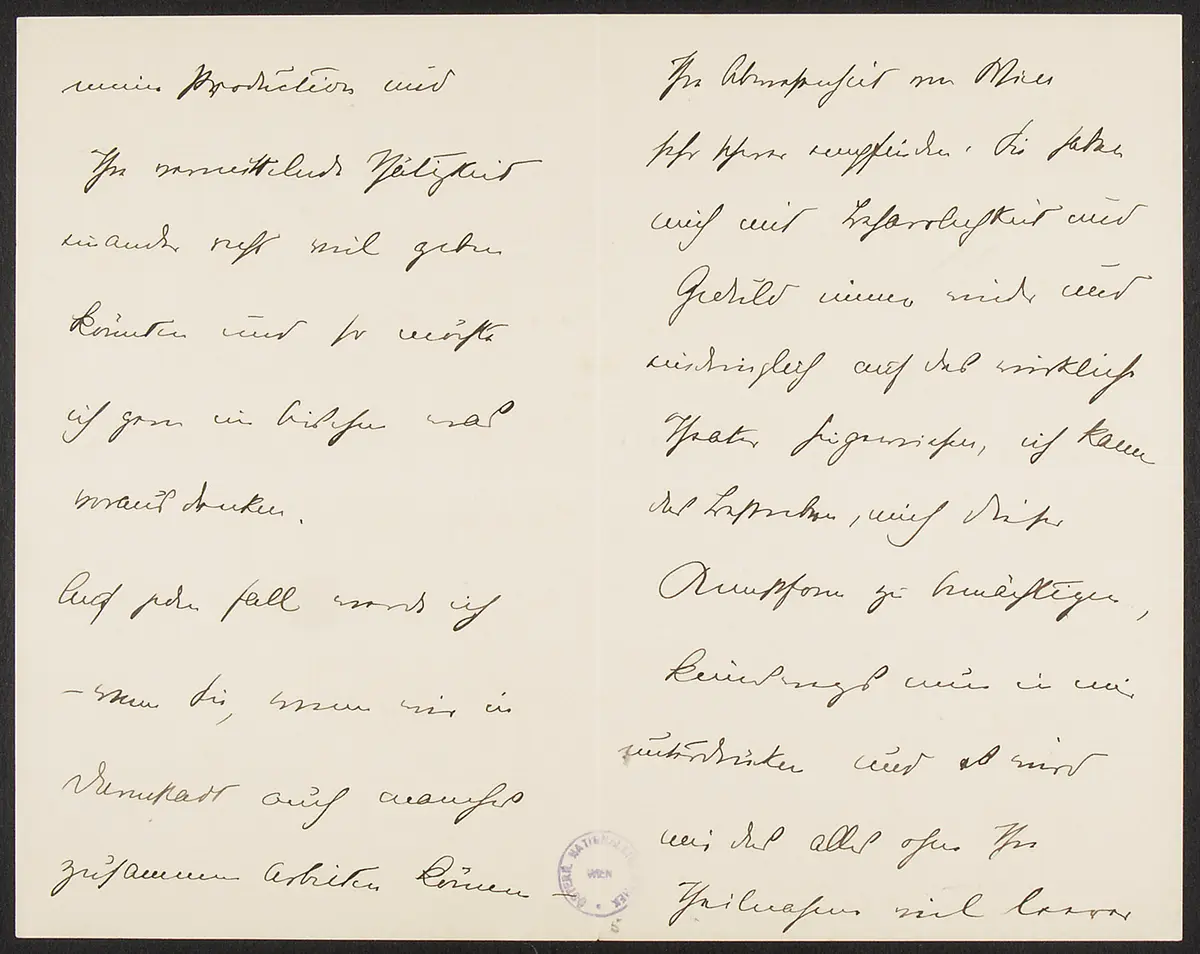 meine Production und
Ihre vermittelnde Thätigkeit
einander recht viel geben
könnten und so möchte
ich gern ein bischen was
voraus denken.
Auf jeden Fall werde ich
– wenn Sie, wenn wir in
Darmstadt auch manches
zusammen arbeiten können –
Ihre Abwesenheit von Wien
sehr schwer empfinden. Sie haben
mich mit Beharrlichkeit und
Geduld immer wieder und
eindringlich auf das wirkliche
Theater hingewiesen, ich kann
das Bestreben, mich dieser
Kunstform zu bemächtigen,
keineswegs mehr in mir
unterdrücken und es wird
mir das alles ohne Ihre
Theilnahme viel leerer
ÖSTERR. NATIONALBIBLIOTHEK
WIEN